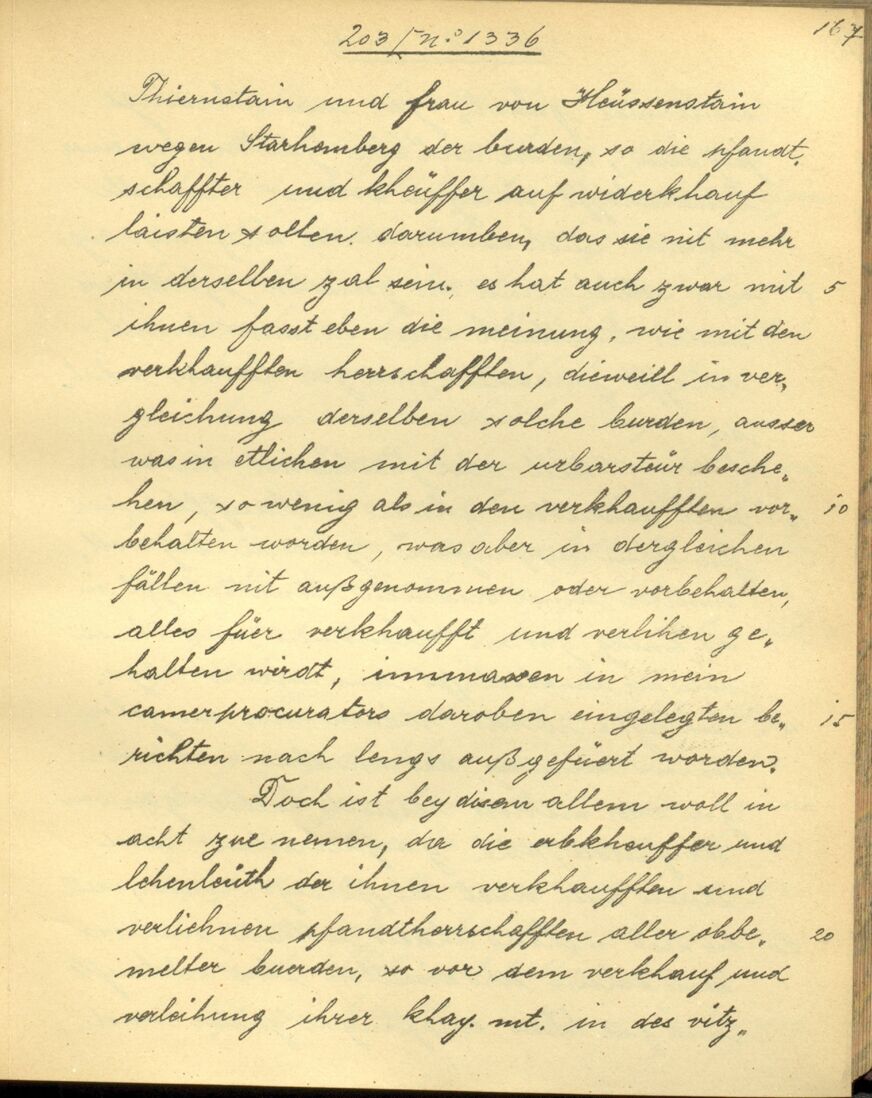 203/n:o 1336
167
Thiernstain und frau von Heüssenstain
wegen Starhemberg der burden, so die pfandt„
schaffter und kheüffer auf widerkhauf
laisten sollen. darumben, das sie nit mehr
in derselben zal sein, es hat auch zwar mit 5
ihnen fasst eben die meinung, wie mit den
verkhaufften herrschafften, dieweill in ver„
gleichung derselben solche burden, ausser
was in etlichen mit der urbarsteür besche„
hen, so wenig als in den verkhaufften vor„ 10
behalten worden, was aber in dergleichen
fällen nit außgenommen oder vorbehalten,
alles füer verkhaufft und verlihen ge„
halten wirdt, immassen in mein
camerprocurators daroben eingelegten be„ 15
richten nach lengs außgefüert worden.
Doch ist bey disem allem woll in
acht zue nemen, da die erbkheuffer und
lehenleüth der ihnen verkhaufften und
verlichnen pfandtherrschafften aller obbe„ 20
melter buerden, so vor dem verkhauf und
verleihung ihrer khay. mt. in des vitz„